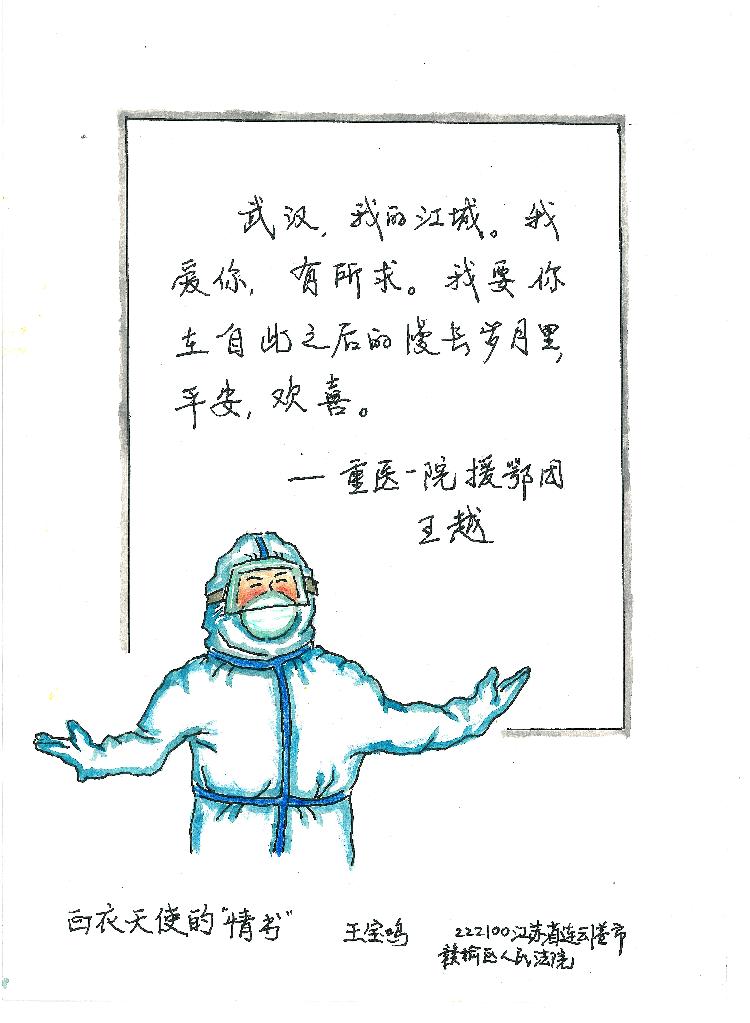 武汉，我的江城。我
爱你，有所求。我要你
在自此之后的漫长岁月里，
平安，欢喜。
— 重医一院援鄂团
王越
白衣天使的“情书”
王宝鸣
222100江苏省连云港市
赣榆区人民法院